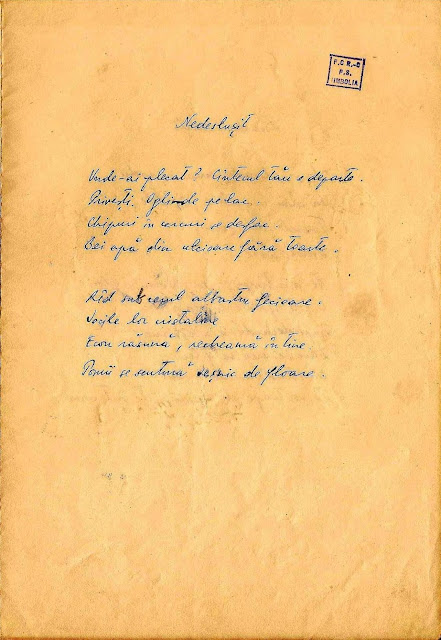 F.C.R.-C
R.S.
JIMBOLIA
Nedeslușit
Unde-ai plecat? Cîntecul tău e departe.
Privești. Oglinde pe lac.
Chipuri în cercuri se desfac.
Bei apă din ulcioare fără toarte.
Rîd sub cerul albastru fecioare.
Vocile lor cristaline
Ecou răsună, recheamă în tine
Pomii se scutură veșnic de floare.